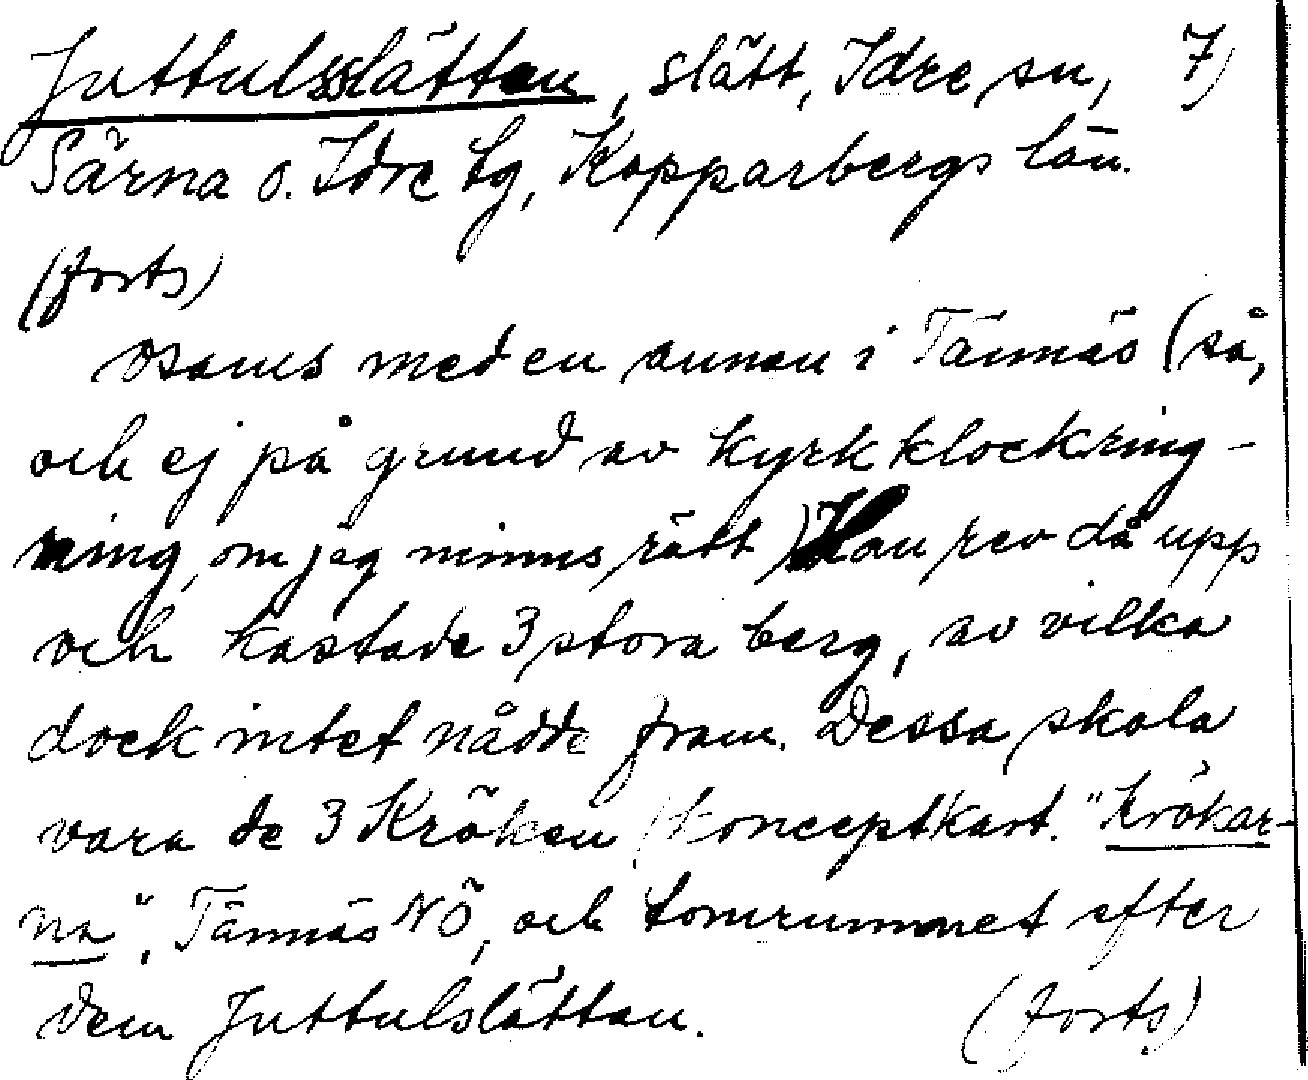 Juttulsslätten, slätt, Idre sn, 7)
Särna o. Idre tg, Kopparbergs län.
(forts)
osams med en annan i Tännäs (så,
och ej på grund av kyrkklockring-
ning, om jag minns rätt) Han rev då upp
och kastade 3 stora berg, av vilka
dock intet nådde fram. Dessa skola
vara de 3 Kröken (konceptkart. "Krökar-
na", Tännäs NÖ, och tomrummet efter
dem Juttulslättan. (forts)